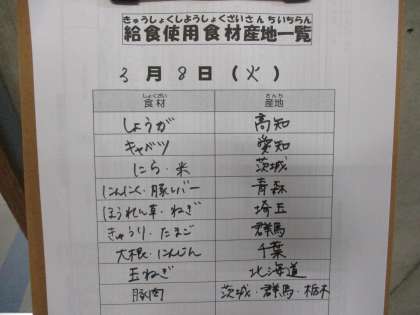 きゅうしょくしようしょくざいさんちいちらん
給食使用食材産地一覧
3月8日(火)
しょくざい さんち
食材 産地
しょうが 高知
キャベツ 愛知
にら・米 茨城
にんにく・豚レバー 青森
ほうれん草・ねぎ 埼玉
きゅうり・たまご 群馬
大根・にんじん 千葉
玉ねぎ 北海道
豚肉 茨城・群馬・栃木